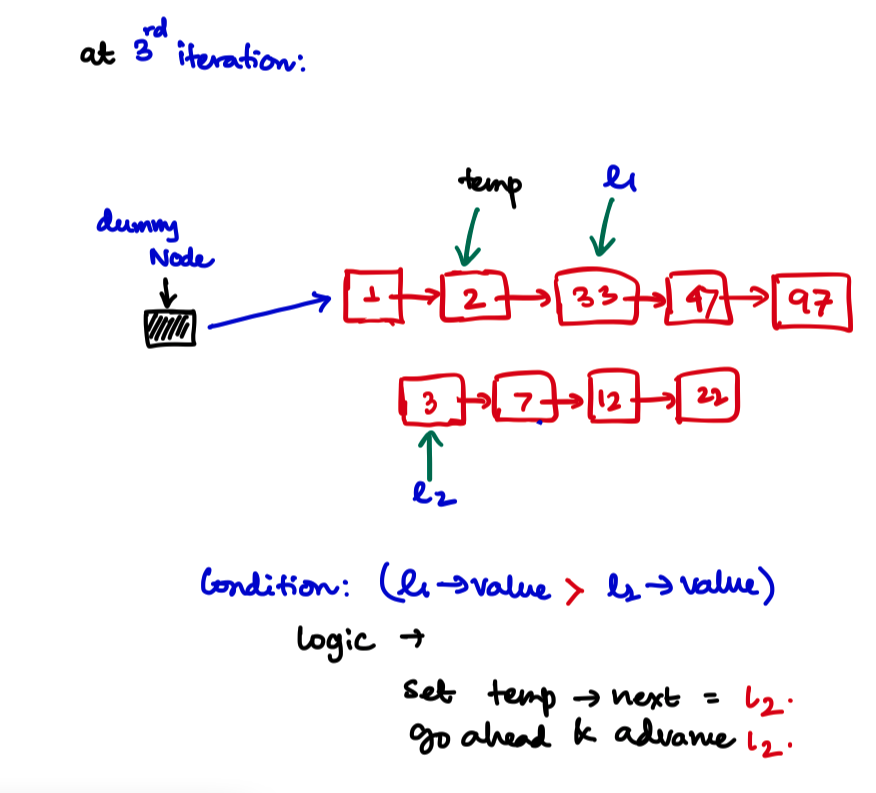 at 3rd iteration:
temp l1
dummy
Node
1 2 33 47 97
3 7 12 22
l2
Condition: (l1→value > l2→value)
logic →
set temp → next = l2.
go ahead & advance l2.